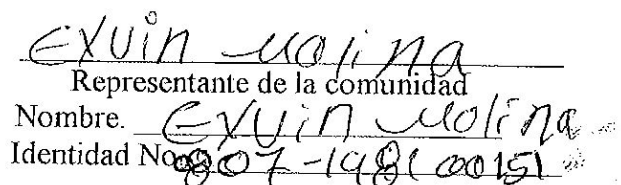 Exuin Molina
Representante de la comunidad
Nombre. Exuin Molina
Identidad No 0807-1981 00151